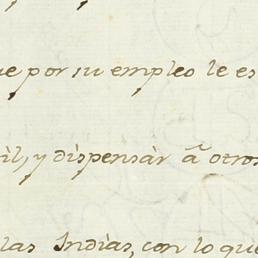 e por su empleo le es
il, y dispensàr à otros
las Indias, con lo que